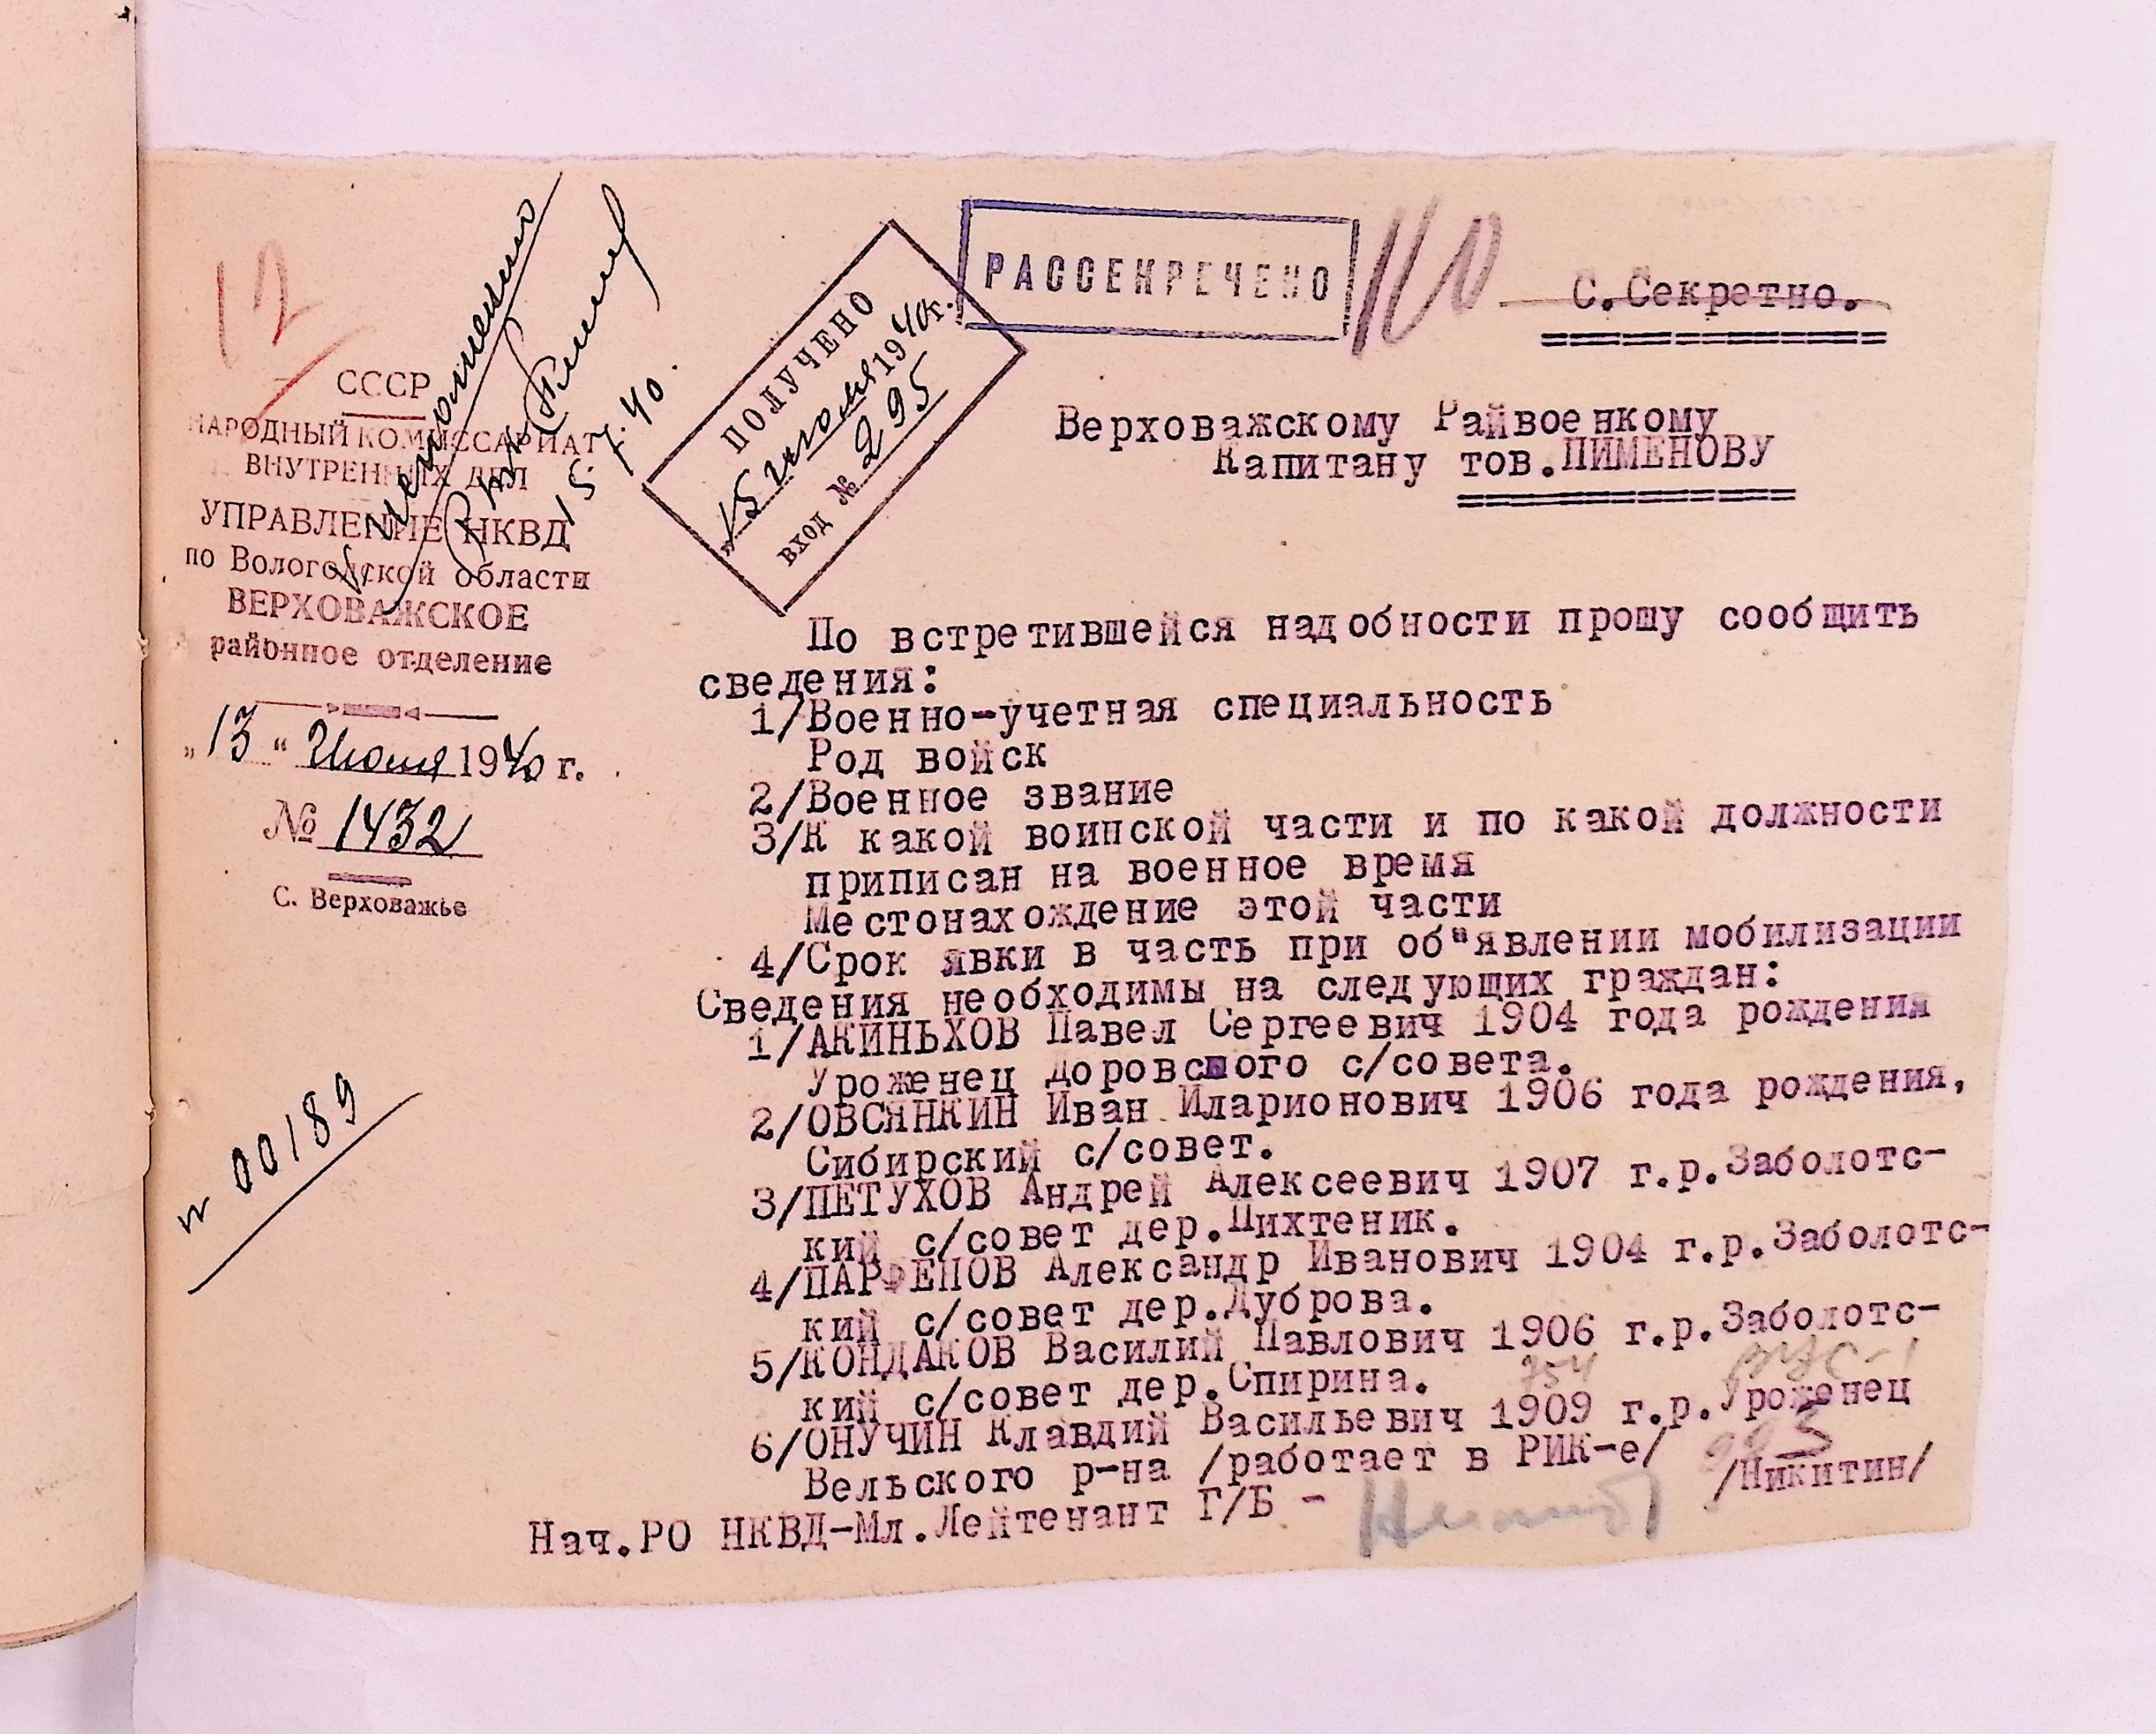 12
К исполнению
15.7.40.
СССР
НАРОДНЫЙ КОМИССАРИАТ
ВНУТРЕННИХ ДЕЛ
УПРАВЛЕНИЕ НКВД
по Вологодской области
ВЕРХОВАЖСКОЕ
районное отделение
„13“ Июля 1940 г.
№ 1432
С. Верховажье
00189
ПОЛУЧЕНО
„15 июля 1940г.
ВХОД № 295
РАССЕКРЕЧЕНО
110
С.Секретно.
Верховажскому Райвоенкому
Капитану тов.ПИМЕНОВУ
По встретившейся надобности прошу сообщить
сведения:
1/Военно-учетная специальность
Род войск
2/Военное звание
3/К какой воинской части и по какой должности
приписан на военное время
Местонахождение этой части
4/Срок явки в часть при об"явлении мобилизации
Сведения необходимы на следующих граждан:
1/АКИНЬХОВ Павел Сергеевич 1904 года рождения
Уроженец Доровского с/совета.
2/ОВСЯНКИН Иван Иларионович 1906 года рождения,
Сибирский с/совет.
3/ПЕТУХОВ Андрей Алексеевич 1907 г.р.Заболотс-
кий с/совет дер.Пихтеник.
4/ПАРФЕНОВ Александр Иванович 1904 г.р.Заболотс-
кий с/совет дер.Дуброва.
5/КОНДАКОВ Василий Павлович 1906 г.р.Заболотс-
кий с/совет дер.Спирина. ВУС-1
6/ОНУЧИН Клавдий Васильевич 1909 г.р.Уроженец
Вельского р-на /работает в РИК-е/
Нач.РО НКВД-Мл.Лейтенант Г/Б - /Никитин/